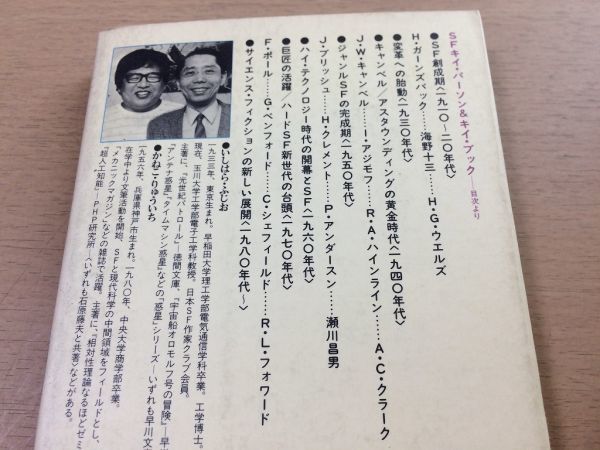 SFキイ・パーソン&キイ・ブック——目次より
●SF創成期〈一九一〇〜二〇年代〉
H・ガーンズバック……海野十三……H・G・ウエルズ
●変革への胎動〈一九三〇年代〉
●キャンベル/アスタウンディングの黄金時代〈一九四〇年代〉
J・W・キャンベル……I・アジモフ……R・A・ハインライン……A・C・クラーク
●ジャンルSFの完成期〈一九五〇年代〉
J・ブリッシュ……H・クレメント……P・アンダースン……瀬川昌男
●ハイ・テクノロジー時代の開幕とSF〈一九六〇年代〉
●巨匠の活躍/ハードSF新世代の台頭〈一九七〇年代〉
F・ポール……G・ベンフォード……C・シェフィールド……R・L・フォワード
●サイエンス・フィクションの新しい展開〈一九八〇年代〜〉
●いしはら・ふじお
一九三三年、東京生まれ。早稲田大学理工学部電気通信学科卒業。工学博士。
現在、玉川大学工学部電子工学科教授。日本SF作家クラブ会員。
主著に、『光世紀パトロール』—徳間文庫、『宇宙船オロモルフ号の冒険』—早
『アンテナ惑星』『タイムマシン惑星』などの「惑星」シリーズ—いずれも早川文
●かねこ・りゅういち
一九五六年、兵庫県神戸市生まれ。一九八〇年、中央大学商学部卒業。
在学中より文筆活動を開始、SFと現代科学の中間領域をフィールドとし、
『メカニックマガジン』などの雑誌で活躍。主著に、『相対性理論なるほどゼミ
『超人工知能』—PHP研究所—〈いずれも石原藤夫と共著〉などがある。